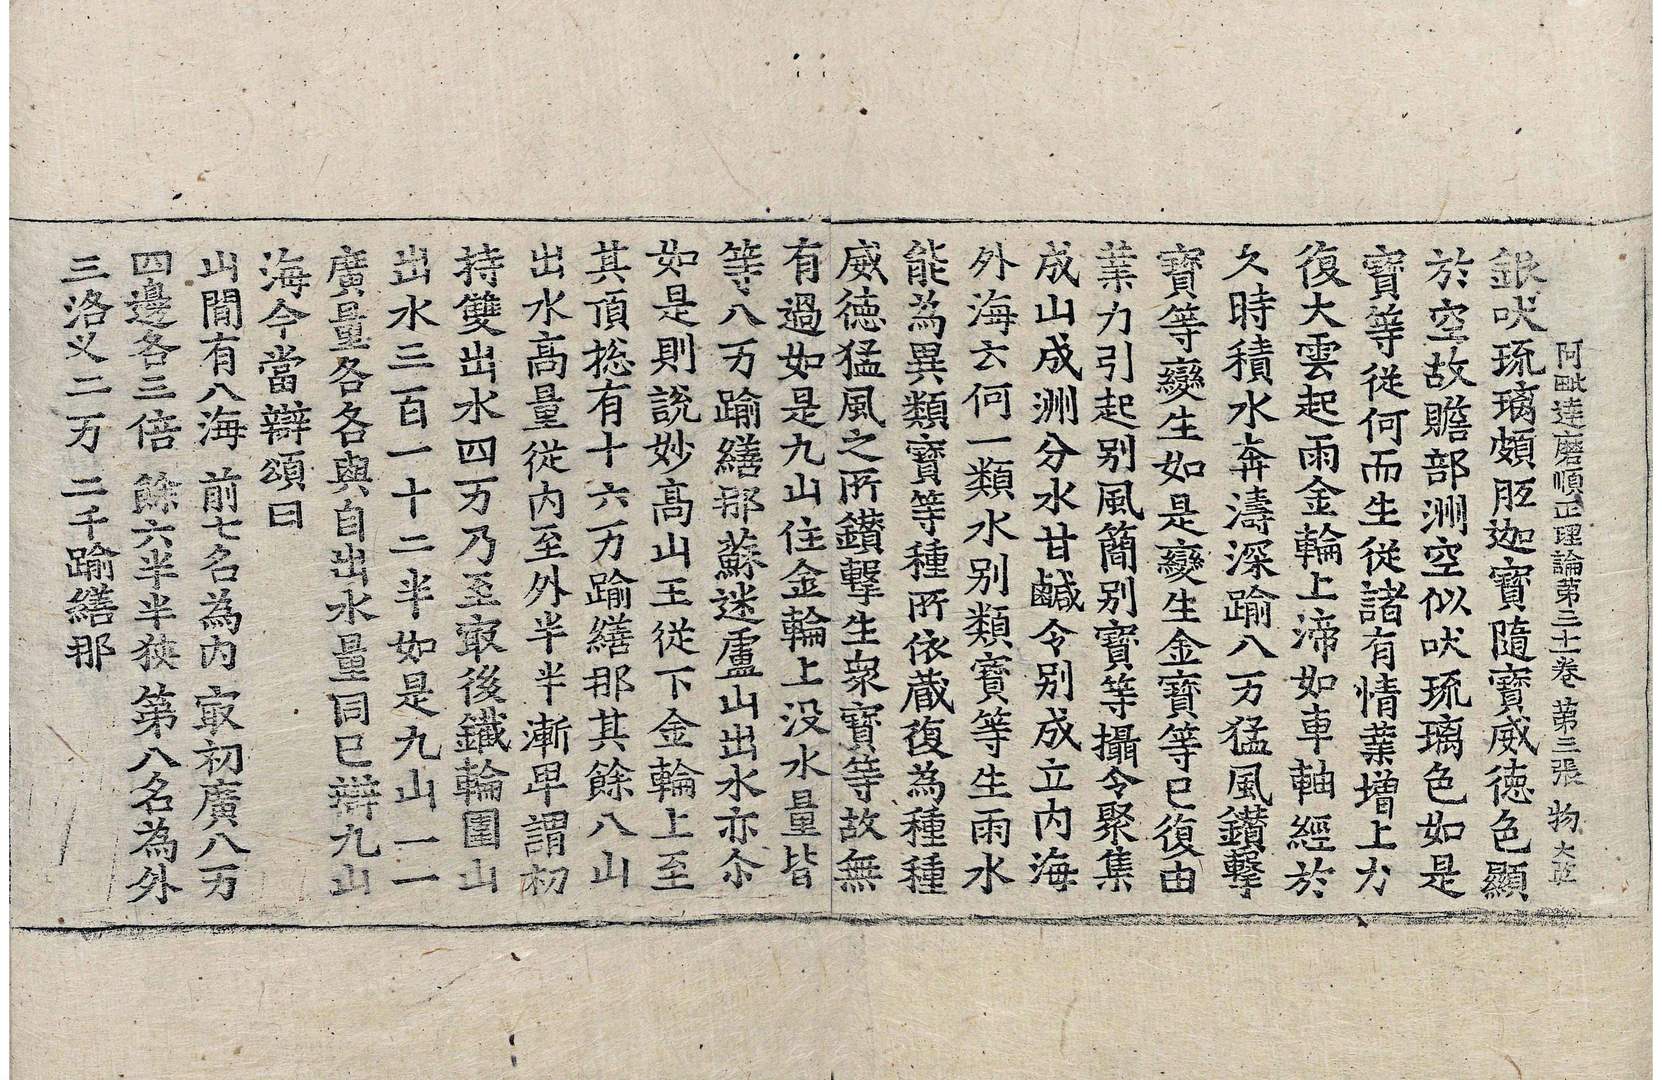 阿毗達磨順正理論第三十一卷 第三張 物
銀吠琉璃頗胝迦寶隨寶威德色顯
於空故贍部洲空似吠琉璃色如是
寶等從何而生從諸有情業增上力
復大雲起雨金輪上渧如車軸經於
久時積水奔濤深踰八万猛風鑚擊
寶等變生如是變生金寶等已復由
業力引起別風簡別寶等攝令聚集
成山成洲分水甘鹹令別成立内海
外海云何一類水別類寶等生雨水
能為異類寶等種所依蔵復為種種
威德猛風之所鑚擊生衆寶等故無
有過如是九山住金輪上没水量皆
等八万踰繕那蘇迷盧山出水亦尒
如是則說妙高山王從下金輪上至
其頂捴有十六万踰繕那其餘八山
出水高量從内至外半半漸卑謂初
持雙出水四万乃至㝡後鐵輪圍山
出水三百一十二半如是九山一一
廣量各各與自出水量同已辯九山
海今當辯頌曰
山間有八海 前七名為内 㝡初廣八万
四邊各三倍 餘六半半狹 第八名為外
三洛义二万 二千踰繕那